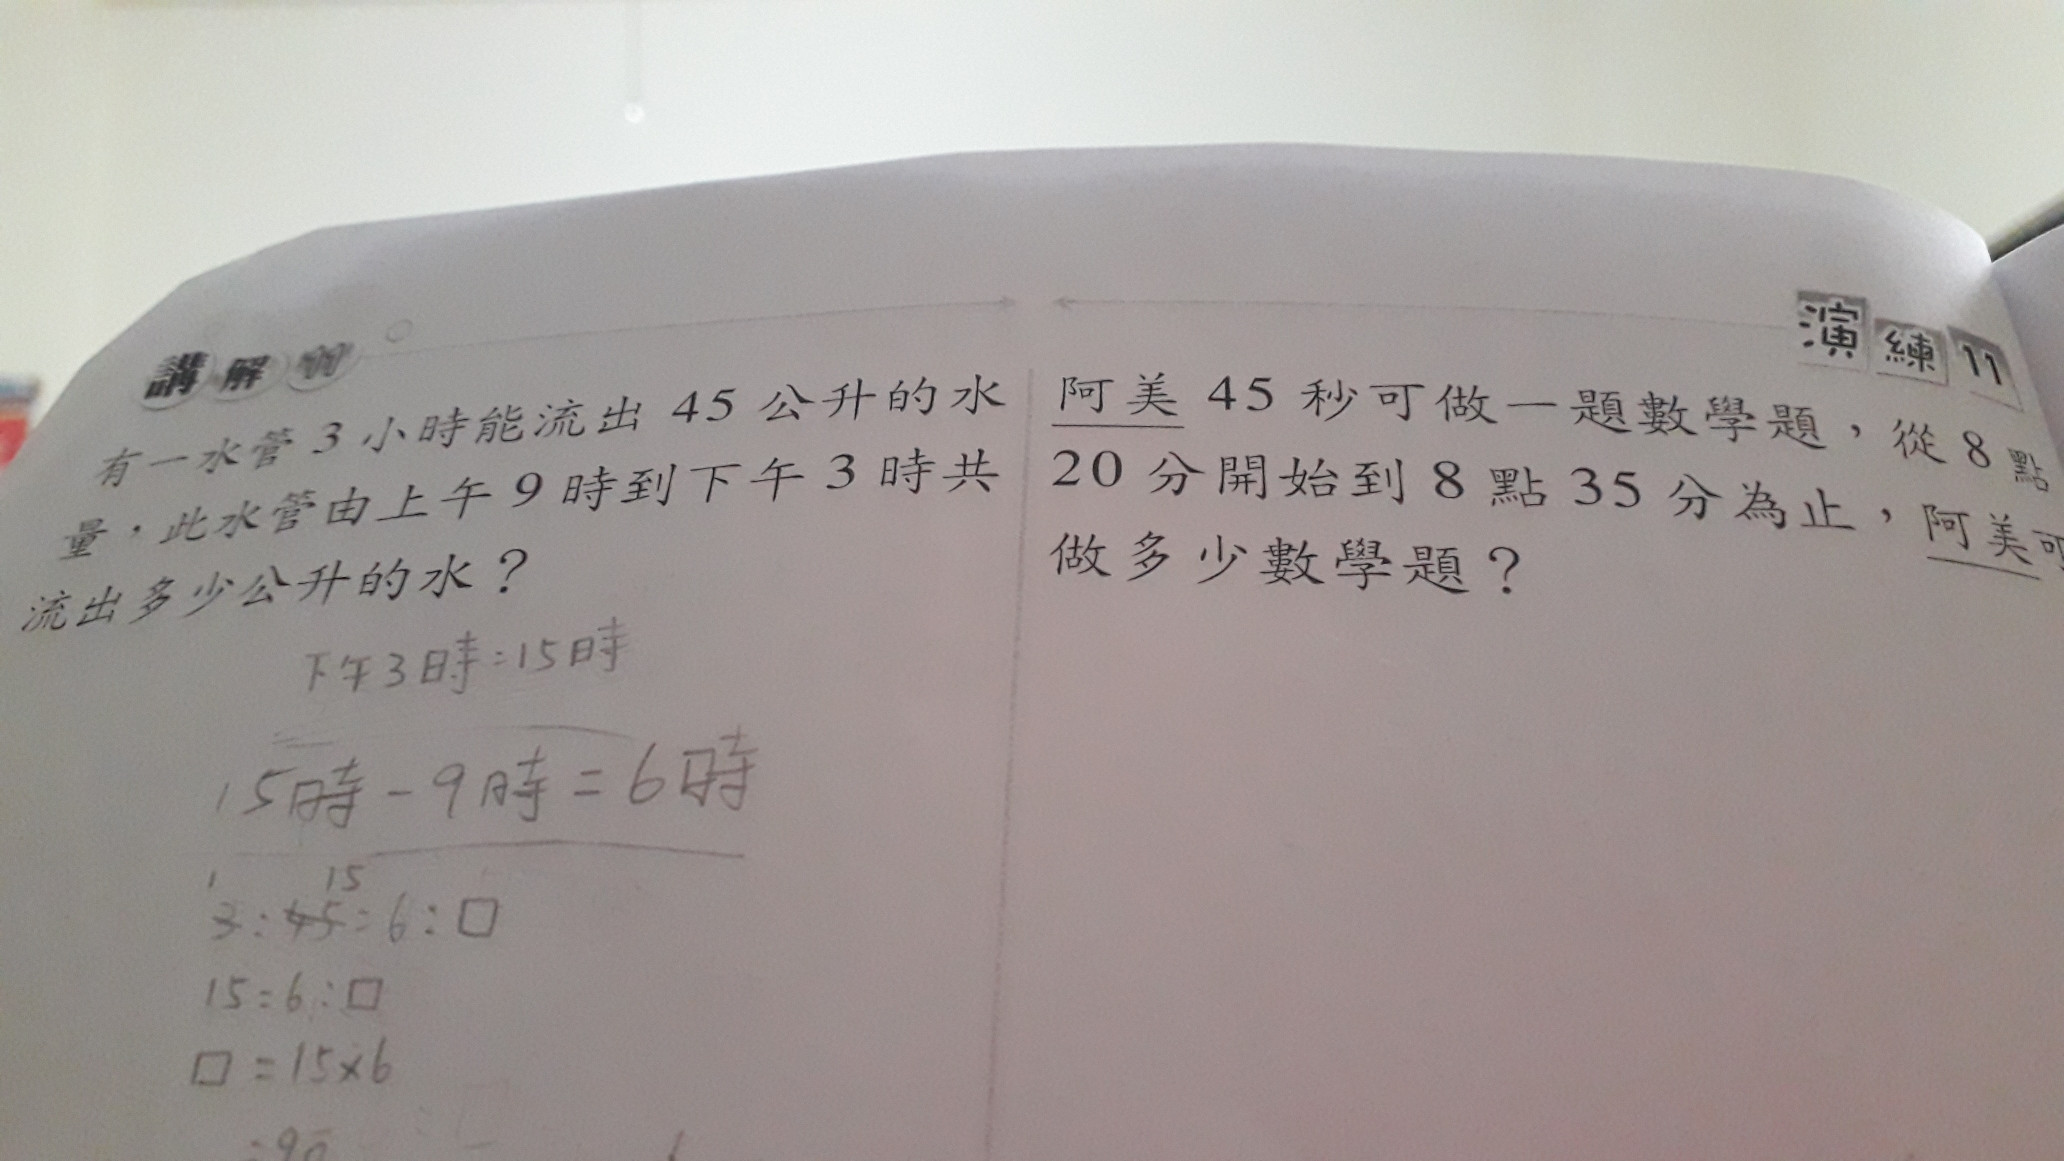 講解
有一水管3小時能流出45公升的水
量，此水管由上午9時到下午3時共
流出多少公升的水？
下午3時=15時
15時-9時=6時
1 15
3:45=6:□
15=6:□
□=15×6
=90
演練11
阿美45秒可做一題數學題，從8點
20分開始到8點35分為止，阿美可
做多少數學題？